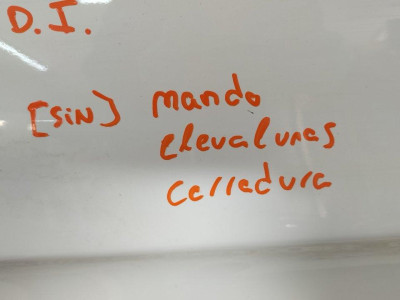 D.I.
[SIN] mando
elevalunas
cerradura